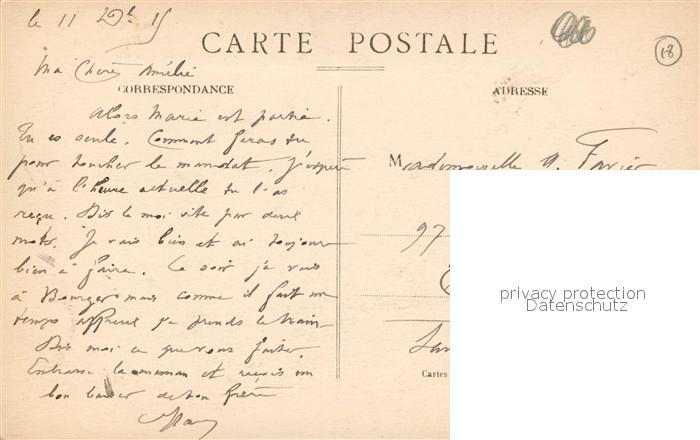 le 11 Dbr 15
CARTE POSTALE
18
Ma Chère Amélie
CORRESPONDANCE
ADRESSE
Alors Maria est partie.
Tu es seule. Comment feras tu
pour toucher le mandat. J'espère
qu'à l'heure actuelle tu l'as
reçu. Dis le moi vite par deux
mots. Je vais bien et ai toujours
bien à faire. Ce soir je vais
à Bourges mais comme il fait un
temps affreux je prends le train
Dis moi ce que vous faites.
Embrasse la maman et reçois un
bon baiser de ton frère
Mademoiselle A. Favier
97
privacy protection
Datenschutz
Cartes